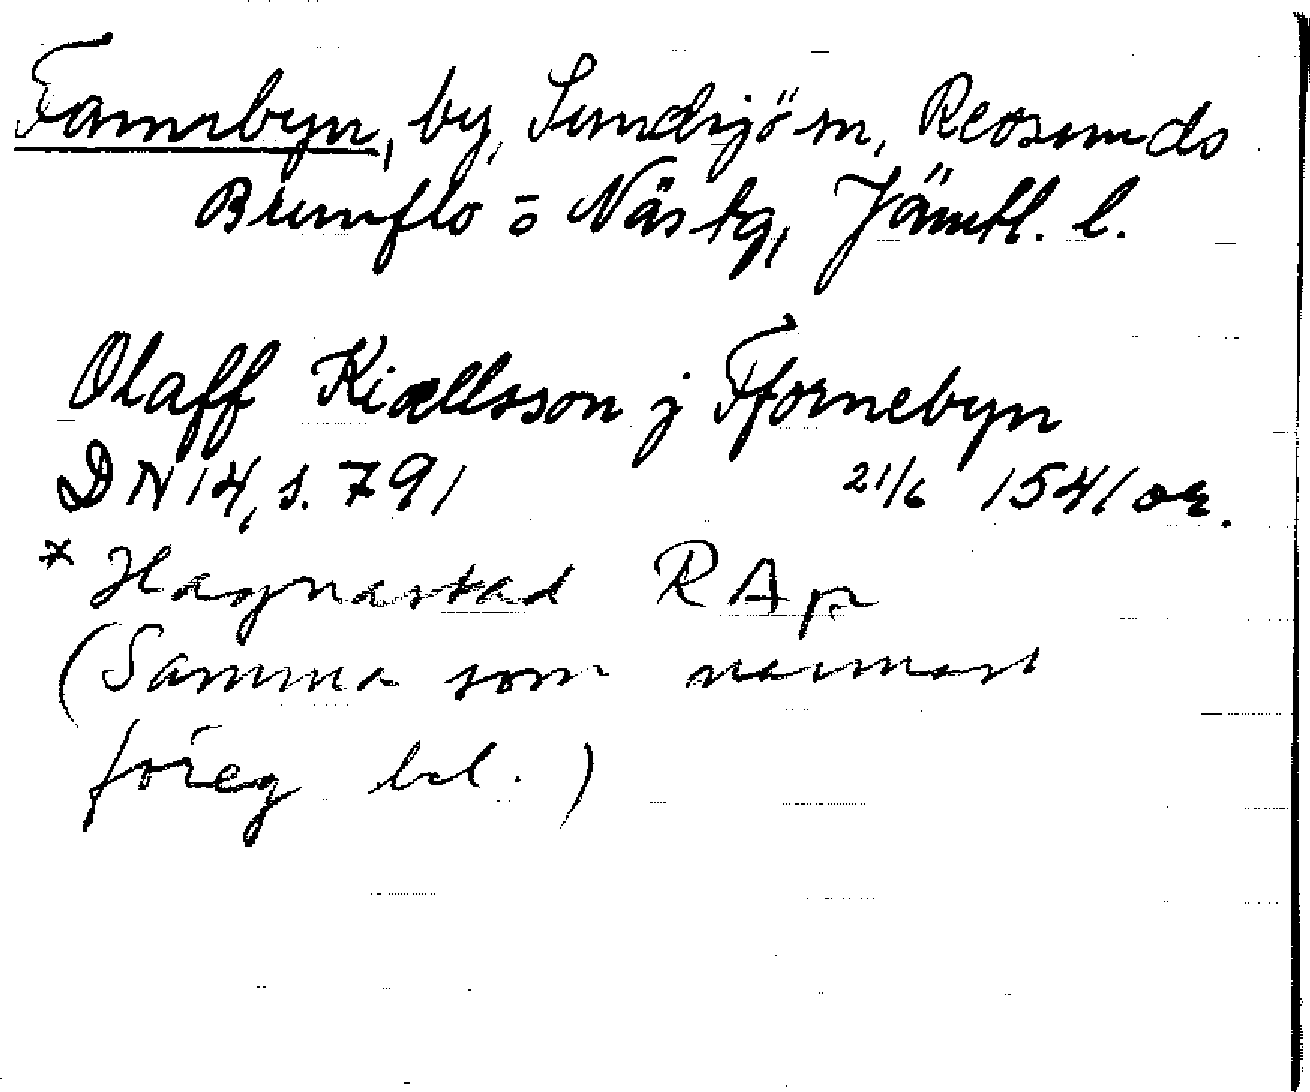 Fannbyn, by, Sundsjö sn, Revsunds
Brunflo o Näs tg, Jämtl. l.
Olaff Kiællsson j Ffornebyn
DN 14, s. 791 21/6 1541 or.
* Hagnastad RAp
(Samma som närmast
föreg bel.)